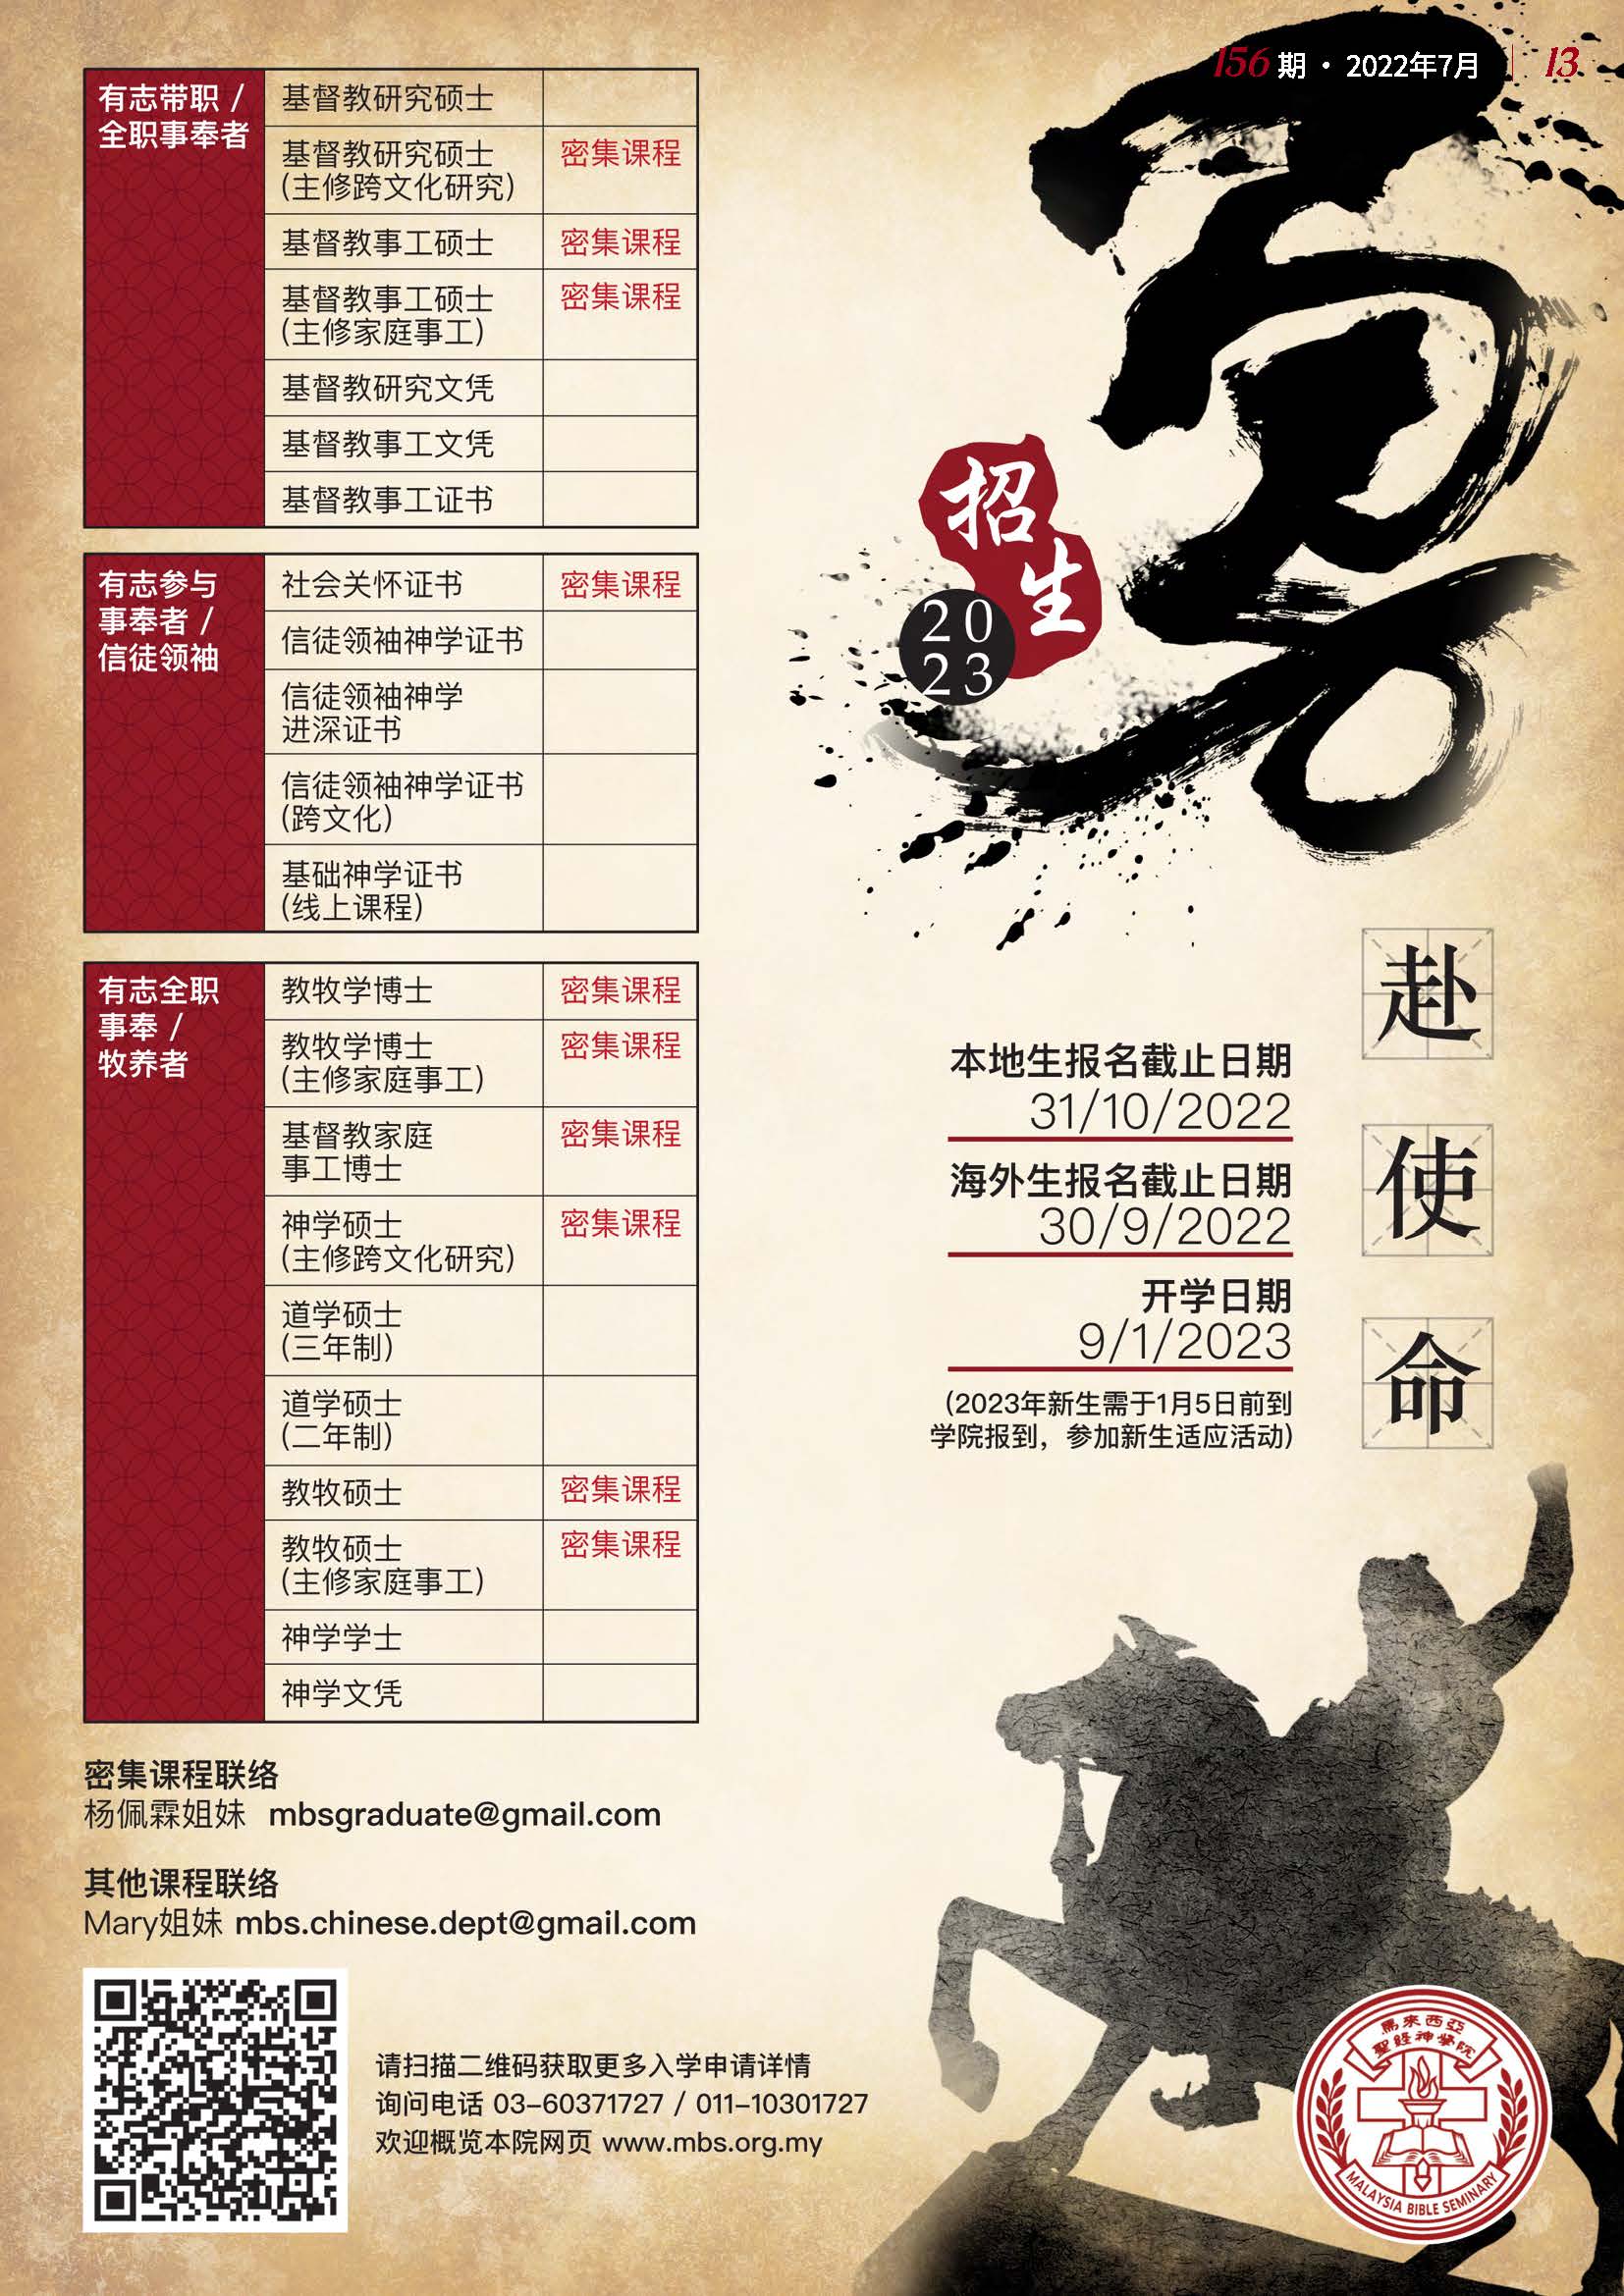 156 期 • 2022年7月 | 13
有志带职 /
全职事奉者
基督教研究硕士
基督教研究硕士 密集课程
(主修跨文化研究)
基督教事工硕士 密集课程
基督教事工硕士 密集课程
(主修家庭事工)
基督教研究文凭
基督教事工文凭
基督教事工证书
有志参与
事奉者 /
信徒领袖
社会关怀证书 密集课程
信徒领袖神学证书
信徒领袖神学
进深证书
信徒领袖神学证书
(跨文化)
基础神学证书
(线上课程)
有志全职
事奉 /
牧养者
教牧学博士 密集课程
教牧学博士 密集课程
(主修家庭事工)
基督教家庭 密集课程
事工博士
神学硕士 密集课程
(主修跨文化研究)
道学硕士
(三年制)
道学硕士
(二年制)
教牧硕士 密集课程
教牧硕士 密集课程
(主修家庭事工)
神学学士
神学文凭
密集课程联络
杨佩霖姐妹 mbsgraduate@gmail.com
其他课程联络
Mary姐妹 mbs.chinese.dept@gmail.com
请扫描二维码获取更多入学申请详情
询问电话 03-60371727 / 011-10301727
欢迎概览本院网页 www.mbs.org.my
勇
招生
20
23
赴
使
命
本地生报名截止日期
31/10/2022
海外生报名截止日期
30/9/2022
开学日期
9/1/2023
(2023年新生需于1月5日前到
学院报到，参加新生适应活动)
馬來西亞
聖經神學院
MALAYSIA BIBLE SEMINARY